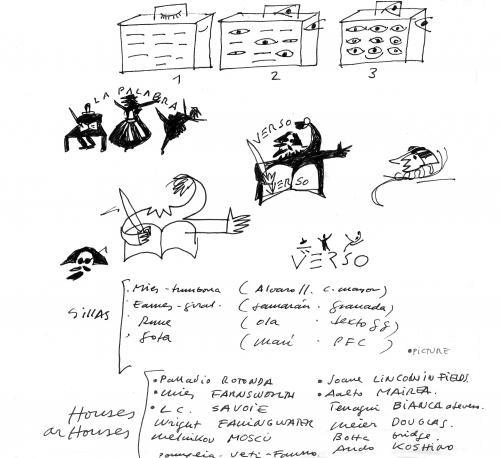 1 2 3
LA PALABRA
VERSO
VERSO
VERSO
Sillas
Mies - (Alvaro ll. c. mayor)
Eames - giral. (Jamarán. granada)
(ola . texto gg)
Sota (mari . PFC)
• PICTURE
Houses
or Houses
• Palladio ROTONDA
• Mies FARNSWORTH
• L.C. SAVOIE
Wright FALLINGWATER
Melnikov MOSCÚ
• Soane LINCOLN IN FIELDS.
• Aalto MAIREA.
BIANCA
Meier DOUGLAS.
Botta bridge.
Ando KOSHINO